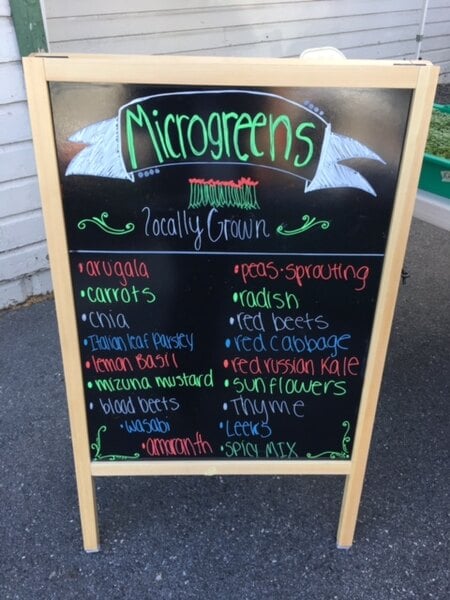 Microgreens
Locally Grown
• arugala
• carrots
• chia
• Italian leaf Parsley
• lemon Basil
• mizuna mustard
• blood beets
• wasabi
• amaranth
• peas-sprouting
• radish
• red beets
• red cabbage
• red russian Kale
• sunflowers
• Thyme
• Leeks
• SPICY MIX